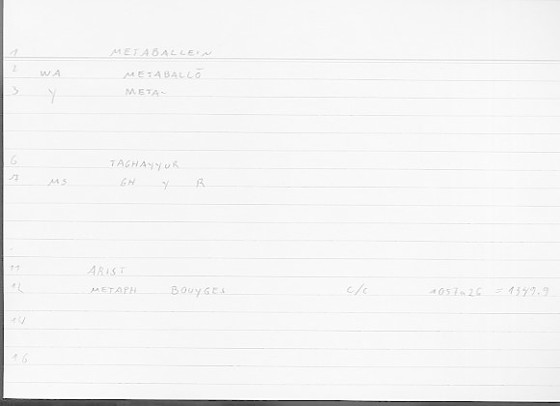 1 METABALLEIN
2 WA METABALLŌ
3 Y META-
6 TAGHAYYUR
7 MS GH Y R
11 ARIST
12 METAPH BOUYGES C/C 1057a26 = 1349.9
14
16